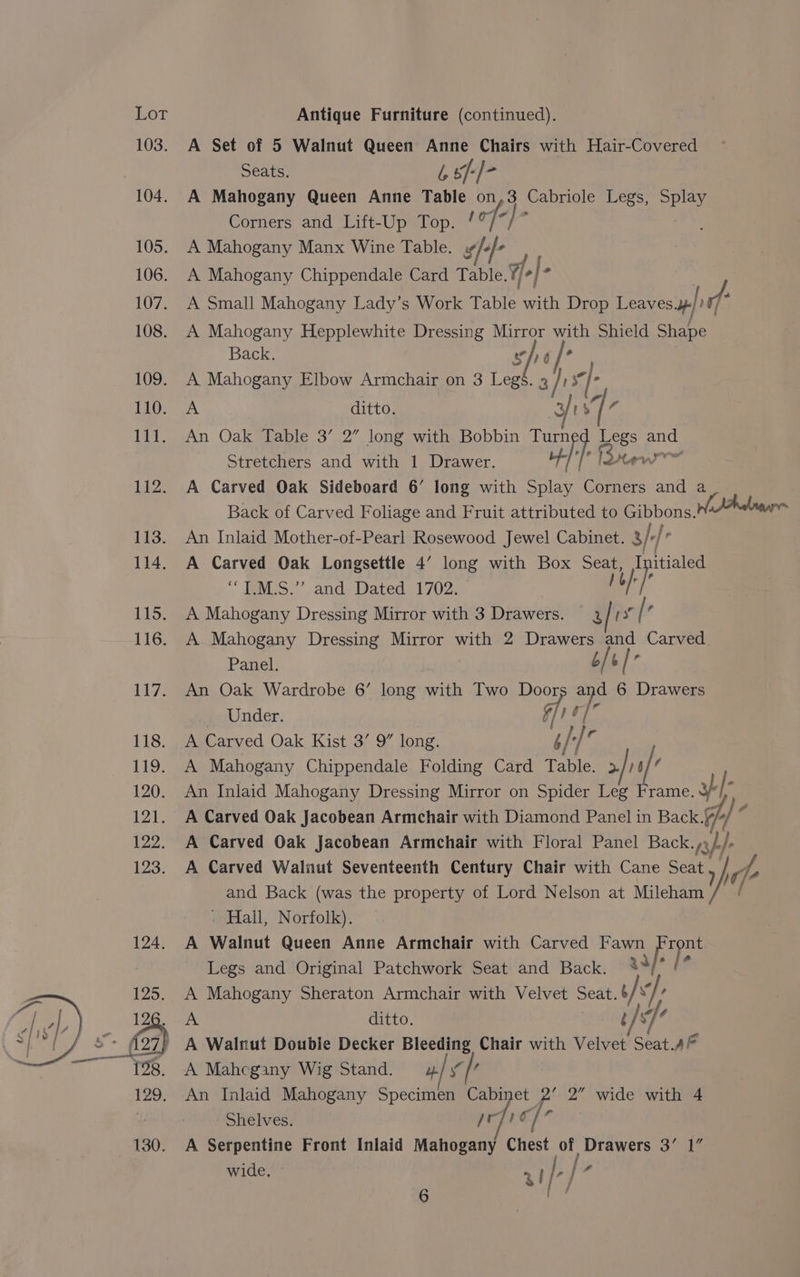 LOT Antique Furniture (continued).
103. A Set of 5 Walnut Queen Anne Chairs with Hair-Covered
Seats.
104. A Mahogany Queen Anne Table on 3 Cabriole Legs, Splay
Corners and Lift-Up Top. 10/-/-
105. A Mahogany Manx Wine Table.
106. A Mahogany Chippendale Card Table.
107. A Small Mahogany Lady's Work Table with Drop Leaves.
108. A Mahogany Hepplewhite Dressing Mirror with Shield Shape
Back.
109. A Mahogany Elbow Armchair on 3 Legs. 3/15/-
110. A ditto. 3/15/-
111. An Oak Table 3′ 2″ long with Bobbin Turned Legs and
Stretchers and with 1 Drawer.
112. A Carved Oak Sideboard 6′ long with Splay Corners and a
Back of Carved Foliage and Fruit attributed to Gibbons. Withdrawn
113. An Inlaid Mother-of-Pearl Rosewood Jewel Cabinet. 3/-/-
114. A Carved Oak Longsettle 4′ long with Box Seat, Initialed
“I.M.S.” and Dated 1702. 16/-/-
115. A Mahogany Dressing Mirror with 3 Drawers. 3/15/-
116. A Mahogany Dressing Mirror with 2 Drawers and Carved
Panel. 6/6/-
117. An Oak Wardrobe 6′ long with Two Doors and 6 Drawers
Under.
118. A Carved Oak Kist 3′ 9″ long. 6/-/-
119. A Mahogany Chippendale Folding Card Table. 2/10/-
120. An Inlaid Mahogany Dressing Mirror on Spider Leg Frame.
121. A Carved Oak Jacobean Armchair with Diamond Panel in Back.
122. A Carved Oak Jacobean Armchair with Floral Panel Back.
123. A Carved Walnut Seventeenth Century Chair with Cane Seat
and Back (was the property of Lord Nelson at Mileham
Hall, Norfolk).
124. A Walnut Queen Anne Armchair with Carved Fawn Front
Legs and Original Patchwork Seat and Back.
125. A Mahogany Sheraton Armchair with Velvet Seat. 6/5/-
126. A ditto. 6/5/-
127. A Walnut Double Decker Bleeding Chair with Velvet Seat.
128. A Mahogany Wig Stand. 4/5/-
129. An Inlaid Mahogany Specimen Cabinet 2′ 2″ wide with 4
Shelves. 10/10/-
130. A Serpentine Front Inlaid Mahogany Chest of Drawers 3′ 1″
wide. 21/-/-
6